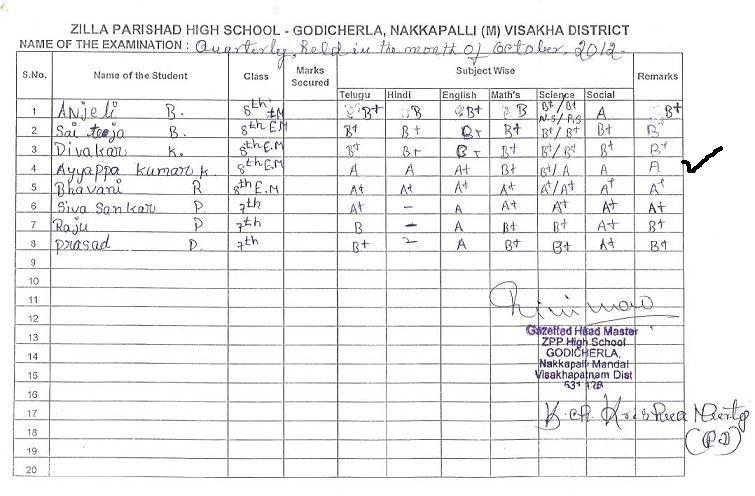 ZILLA PARISHAD HIGH SCHOOL - GODICHERLA, NAKKAPALLI (M) VISAKHA DISTRICT
NAME OF THE EXAMINATION : Quarterly, held in the month of October, 2012.
S.No. Name of the Student Class Marks Secured Subject Wise Remarks
Telugu Hindi English Math's Science Social
1 Anjeli B. 8th EM B+ B B+ B B+/B+ A B+
N.S/P.S
2 Sai teja B. 8th E.M B+ B+ B+ B+ B+/B+ B+ B+
3 Divakar K. 8th E.M B+ B+ B+ B+ B+/B+ B+ B+
4 Ayyappa Kumar K. 8th E.M A A A+ B+ B+/A A A
5 Bhavani R 8th E.M A+ A+ A+ A+ A+/A+ A+ A+
6 Siva Sankar P. 7th A+ - A A+ A+ A+ A+
7 Raju P 7th B - A B+ B+ A+ B+
8 prasad D. 7th B+ - A B+ B+ A+ B+
9
10
11
12
13
14
15
16
17
18
19
20
Gazetted Head Master
ZPP High School
GODICHERLA,
Nakkapalli Mandal
Visakhapatnam Dist
531 126
K.ch. Krishna Murty
(PD)